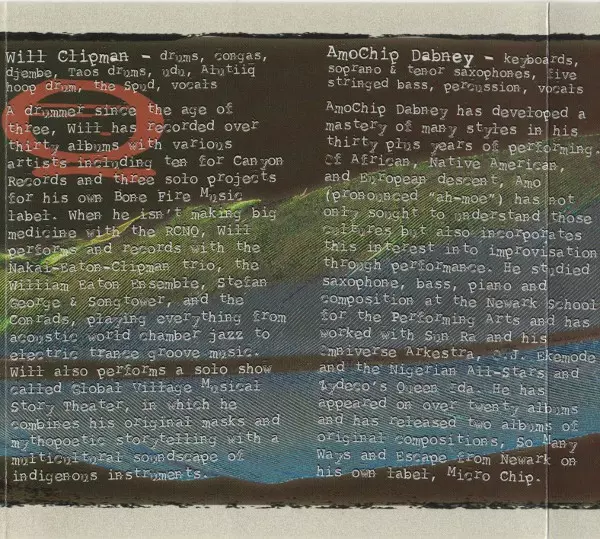 Will Clipman - drums, congas,
djembe, Taos drums, udu, Alutiiq
hoop drum, the Spud, vocals
A drummer since the age of
three, Will has recorded over
thirty albums with various
artists including ten for Canyon
Records and three solo projects
for his own Bone Fire Music
label. When he isn't making big
medicine with the RCNQ, Will
performs and records with the
Nakai-Eaton-Clipman trio, the
William Eaton Ensemble, Stefan
George & Songtower, and the
Conrads, playing everything from
acoustic world chamber jazz to
electric trance groove music.
Will also performs a solo show
called Global Village Musical
Story Theater, in which he
combines his original masks and
mythopoetic storytelling with a
multicultural soundscape of
indigenous instruments.
AmoChip Dabney - keyboards,
soprano & tenor saxophones, five
stringed bass, percussion, vocals
AmoChip Dabney has developed a
mastery of many styles in his
thirty plus years of performing.
Of African, Native American,
and European descent, Amo
(pronounced "ah-moe") has not
only sought to understand those
cultures but also incorporates
this interest into improvisation
through performance. He studied
saxophone, bass, piano and
composition at the Newark School
for the Performing Arts and has
worked with Sun Ra and his
Omniverse Arkestra, O.J. Ekemode
and the Nigerian All-Stars and
Zydeco's Queen Ida. He has
appeared on over twenty albums
and has released two albums of
original compositions, So Many
Ways and Escape from Newark on
his own label, Micro Chip.